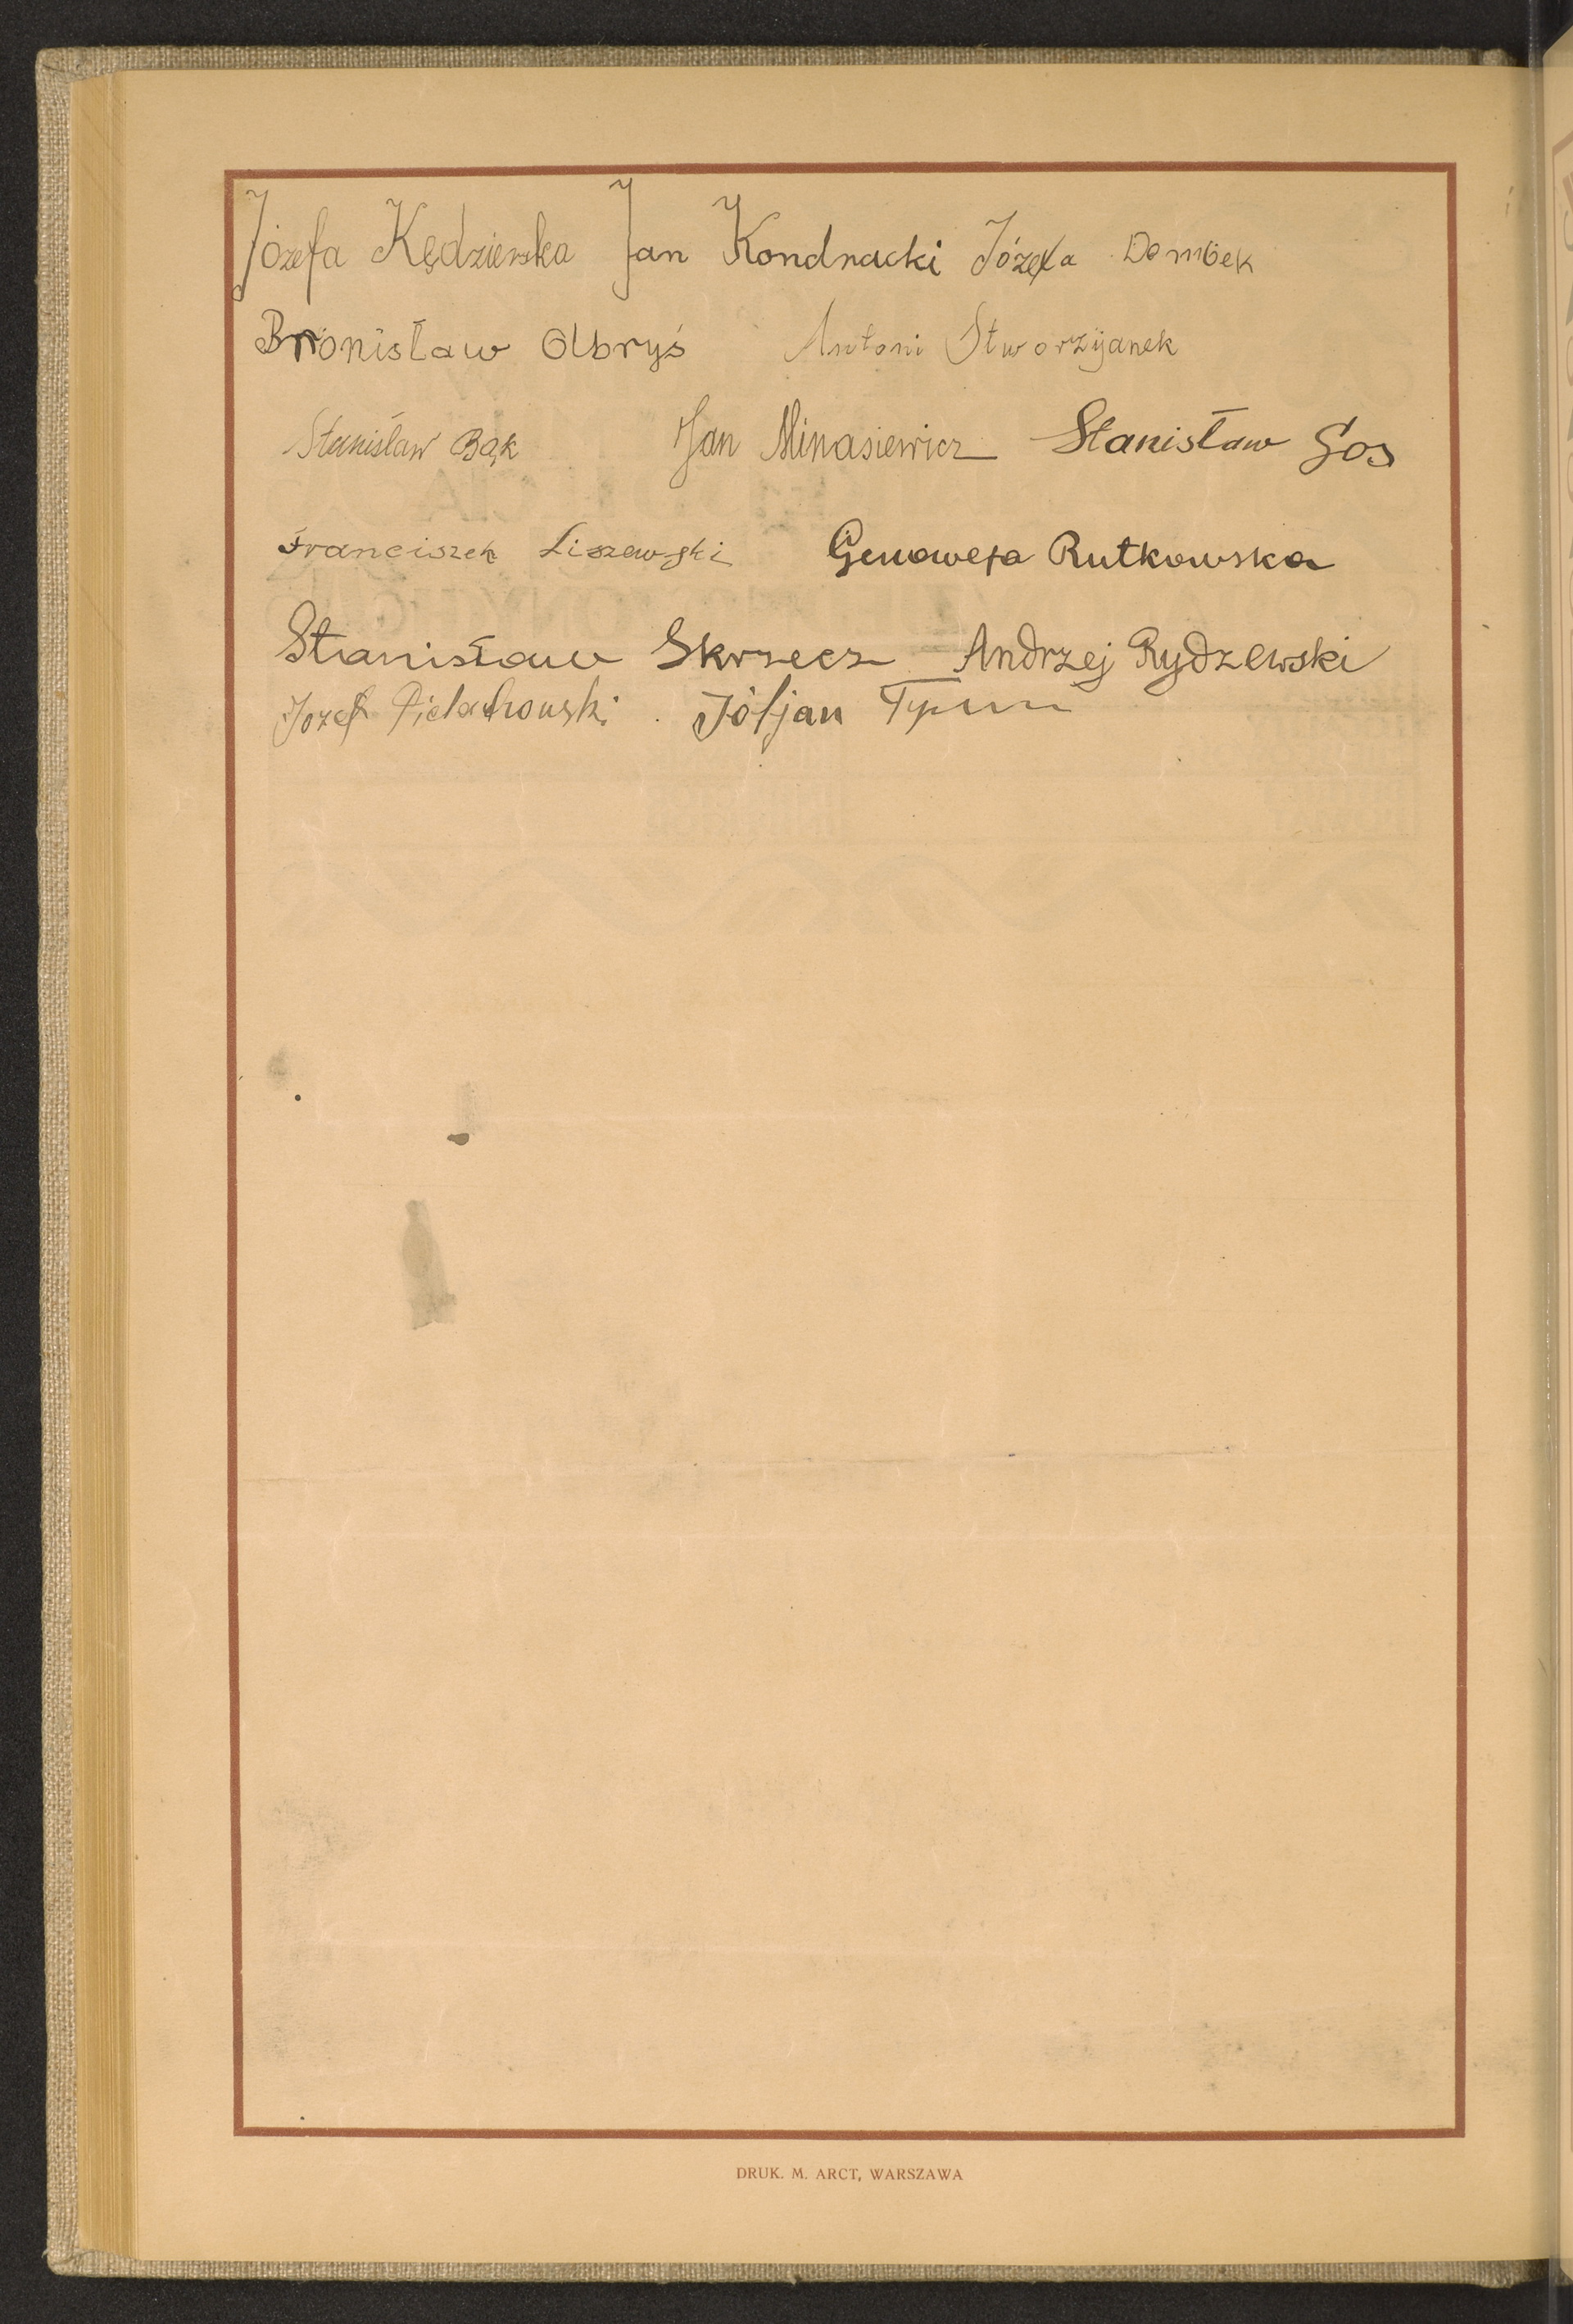 Józefa Kędzierska Jan Kondracki Józefa Dombek
Bronisław Olbryś Antoni Stworzyjanek
Stanisław Bąk Jan Minasiewicz Stanisław Gos
Franciszek Liszewski Genowefa Rutkowska
Stanisław Skrzecz Andrzej Rydzewski
Józef Jóljan
DRUK. M. ARCT, WARSZAWA